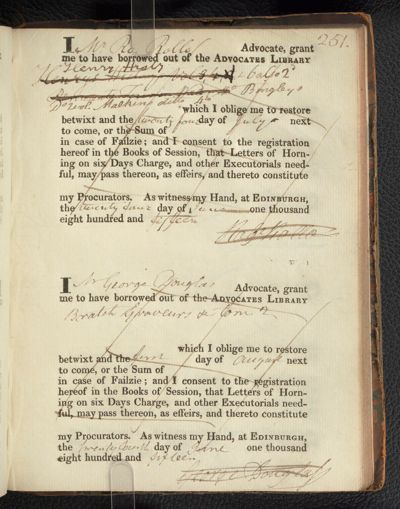 251.
I Mr Ro Rolls Advocate, grant
me to have borrowed out of the ADVOCATES LIBRARY
Henry
which I oblige me to restore
betwixt and the twenty four day of July next
to come, or the Sum of
in case of Failzie; and I consent to the registration
hereof in the Books of Session, that Letters of Horn-
ing on six Days Charge, and other Executorials need-
ful, may pass thereon, as effeirs, and thereto constitute
my Procurators. As witness my Hand, at EDINBURGH,
the twenty four day of June one thousand
eight hundred and sixteen
I Mr George Douglas Advocate, grant
me to have borrowed out of the ADVOCATES LIBRARY
Bratsh Graveurs 2
which I oblige me to restore
betwixt and the day of August next
to come, or the Sum of
in case of Failzie; and I consent to the registration
hereof in the Books of Session, that Letters of Horn-
ing on six Days Charge, and other Executorials need-
ful, may pass thereon, as effeirs, and thereto constitute
my Procurators. As witness my Hand, at EDINBURGH,
the day of June one thousand
eight hundred and sixteen
George Douglas